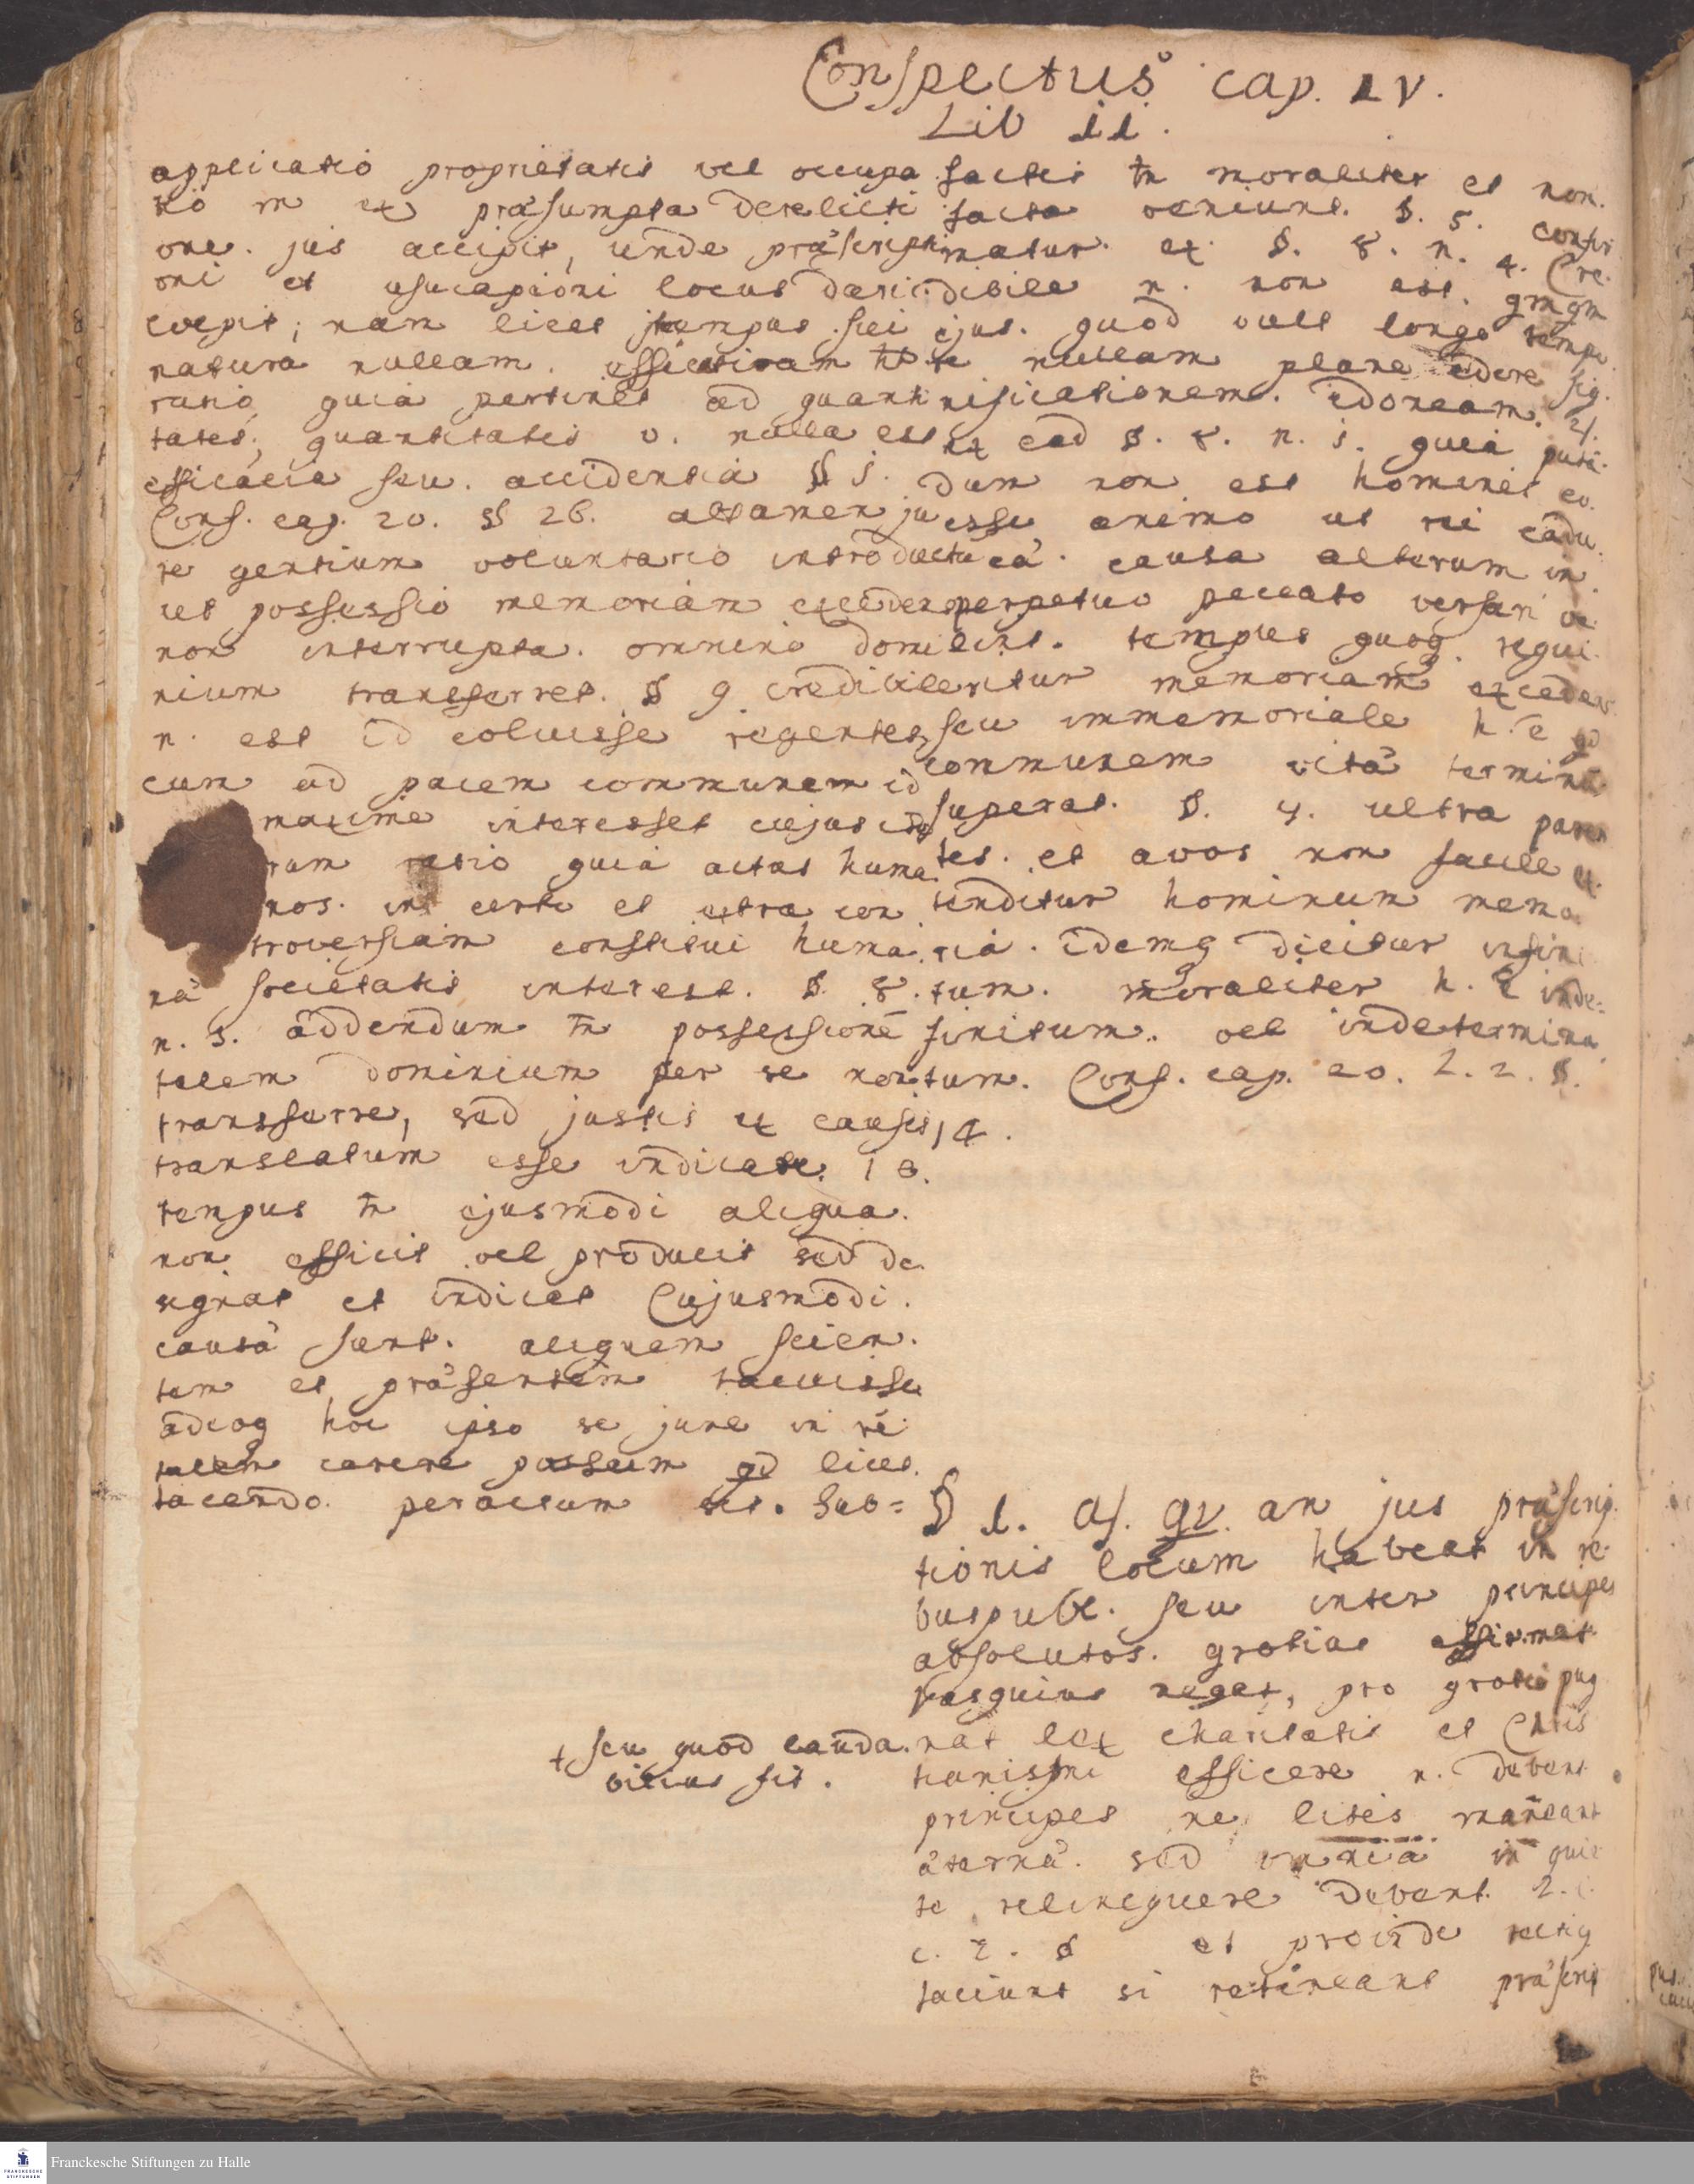 Conspectus cap. IV.
Lib II.
applicatio proprietatis vel occupa
tio m ex præsumpta derelicti
one. jus accipit, unde præscripti
oni et usucapioni locus dari
coepit, nam licet tempus sui
natura nullam effectivam
ratio quia pertinet ad quanti
tates, quantitatis v. nulla est
efficacia seu accidentia § 1.
Conf. cap. 20. §§ 26. attamen ju
re gentium voluntario introductu
ut possessio memoriam excedens
non interrupta omnino domi
nium transferret. § 9 credibile
n. est id voluisse regentes,
cum ad pacem communem id
maxime interesset cujus
rum ratio quia actus huma
nos in certo et extra con
troversiam constitui huma
næ societatis interest. § 8.
n. 3. addendum tn possessionē
talem dominium per se non
transferre, sed justis ex causis
translatum esse indicare. 10.
tempus tn ejusmodi aliqua
non efficit vel producit sed de
signat et indicat Cujusmodi
causæ sunt. aliquem scien
tem et præsentem tacuisse
adeoq hoc ipso se jure in rē
talem carere passum qd licet
tacendo peractum est. Sub=
+ seu quod lauda
bilius sit.
factis tn moraliter et non
facta veniunt. § 5. confir
matur ex §. 8. n. 4. Cre
dibile n. non est. qmqm
ejus. quod vult longo tempo
re nullam plane edere sig
nificationem idoneam. 2.
ex ead §. 8. n. 1. quia putā
dum non est homines eo
esse animo ut rei cadu
cæ causa alterum in
perpetuo peccato versari ve
lint. tempus quoq requi
ritur memoriam excedens
seu immemoriale h. e qd
communem vitæ terminū
superat. §. 7. ultra paren
tes et avos non facile ex
tenditur hominum memo
ria. idemq dicitur infini
tum moraliter h. e inde=
finitum vel indetermina
tum. Conf. cap. 20. L. 2. §.
14.
§ 1. Af. qv. an jus præscrip
tionis locum habeat in re
bus publ. seu inter principes
absolutos. grotius affirmat
Vasquius negat, pro grotio pug
nat lex charitatis et Chris
tianismi efficere n. debent
principes ne lites maneant
æternæ. sed omnia in quie
te relinquere debent. 2.
c. 2. § et proinde recte
faciunt si retineant præscrip
Franckesche Stiftungen zu Halle